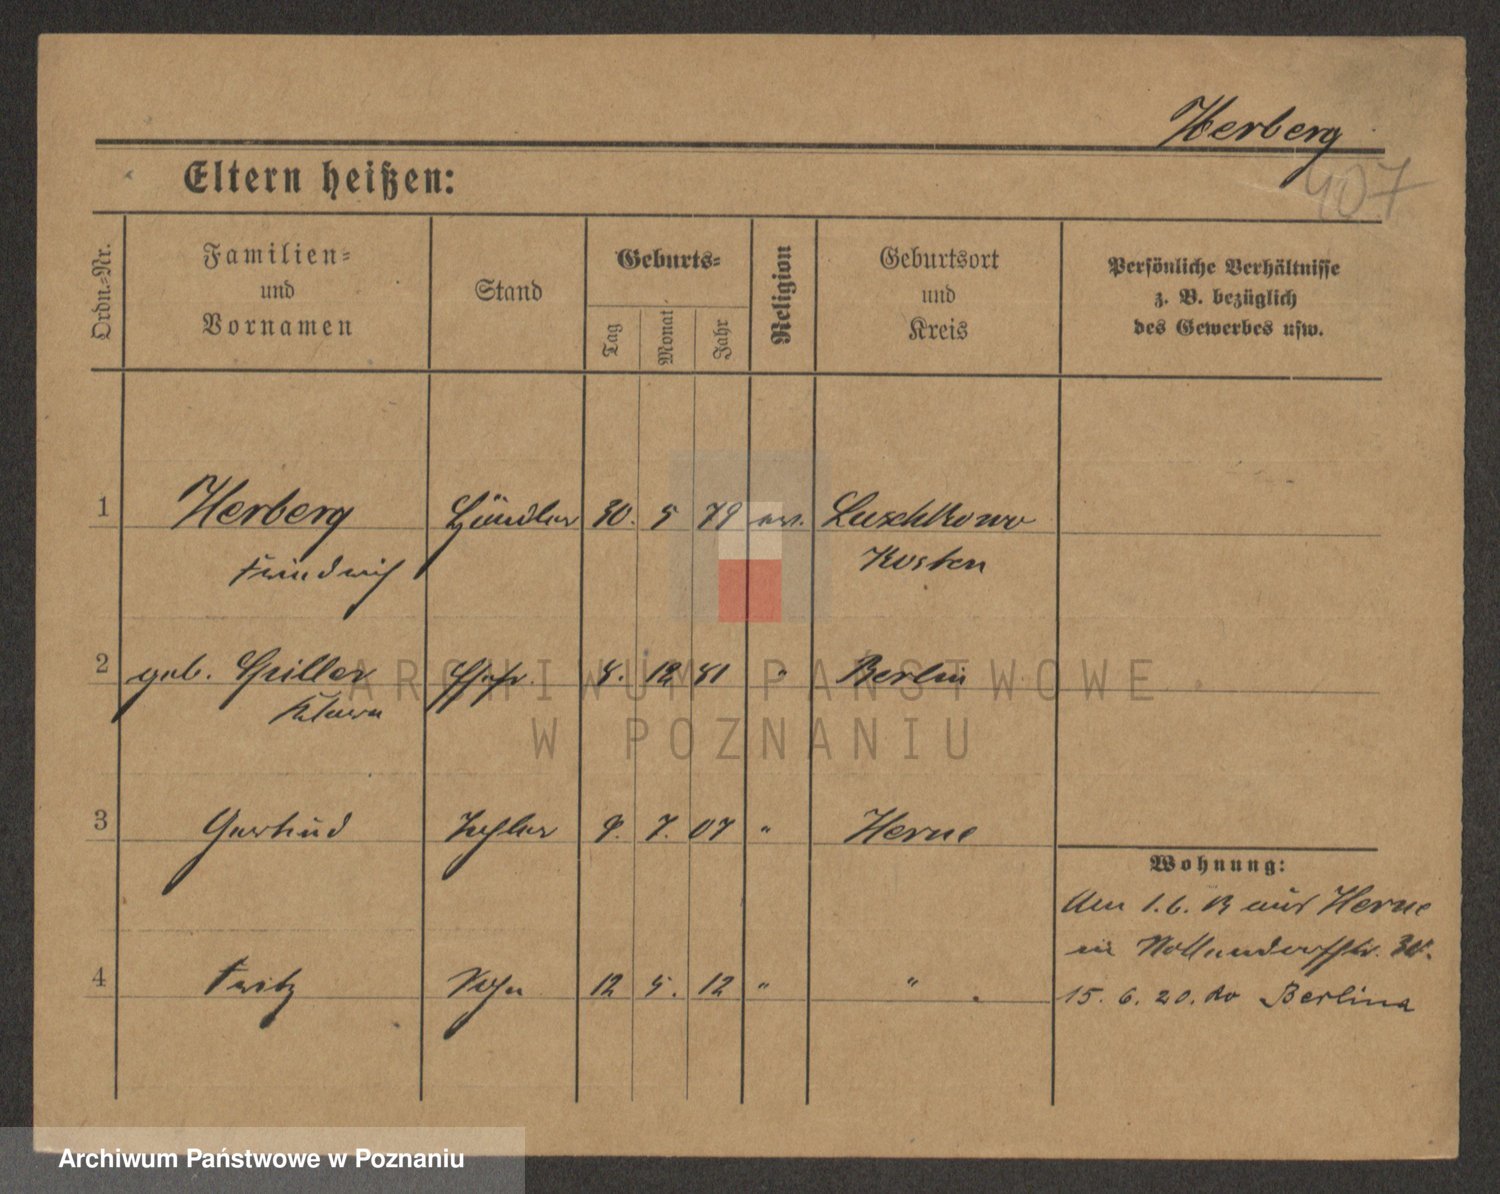 Herberg
407
Eltern heißen:
Ordn.-Nr.
Familien- und Vornamen
Stand
Geburts-
Tag
Monat
Jahr
Religion
Geburtsort und Kreis
Persönliche Verhältnisse
z. B. bezüglich
des Gewerbes usw.
1 Herberg Händler 30. 5 79 ev. Luschkowo
Friedrich Kosten
2 geb. Hiller Ehefr. 8. 12 81 " Berlin
Klara
3 Gertrud Tochter 9. 7. 07 " Herne
Wohnung:
Am 1. 6. 13 aus Herne
in Nollendorfstr. 30.
4 Fritz Sohn 12 5. 12 " "
15. 6. 20. do Berlina
ARCHIWUM PAŃSTWOWE
W POZNANIU
Archiwum Państwowe w Poznaniu